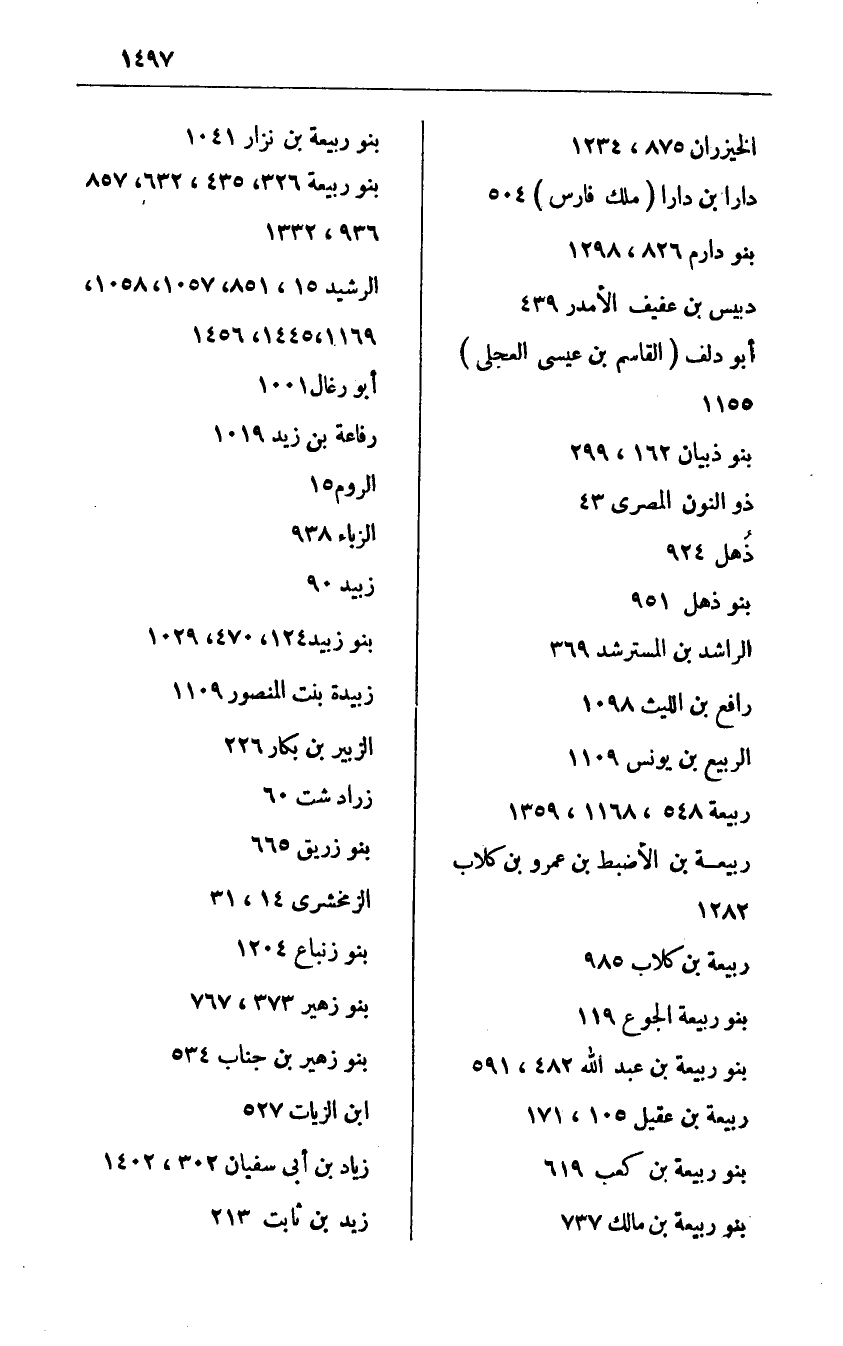 ١٤٩٧
الخيزران ٨٧٥ ، ١٢٣٤
دارا بن دارا ( ملك فارس ) ٥٠٤
بنو دارم ٨٢٦ ، ١٢٩٨
دبيس بن عفيف الأمدر ٤٣٩
أبو دلف ( القاسم بن عيسى العجلى )
١١٥٥
بنو ذبيان ١٦٢ ، ٢٩٩
ذو النون المصرى ٤٣
ذُهل ٩٢٤
بنو ذهل ٩٥١
الراشد بن المسترشد ٣٦٩
رافع بن الليث ١٠٩٨
الربيع بن يونس ١١٠٩
ربيعة ٥٤٨ ، ١١٦٨ ، ١٣٥٩
ربيعة بن الأضبط بن عمرو بن كلاب
١٢٨٢
ربيعة بن كلاب ٩٨٥
بنو ربيعة الجوع ١١٩
بنو ربيعة بن عبد الله ٤٨٢ ، ٥٩١
ربيعة بن عقيل ١٠٥ ، ١٧١
بنو ربيعة بن كعب ٦١٩
بنو ربيعة بن مالك ٧٣٧
بنو ربيعة بن نزار ١٠٤١
بنو ربيعة ٣٢٦، ٤٣٥ ، ٦٣٢، ٨٥٧
٩٣٦ ، ١٣٣٢
الرشيد ١٥ ، ٨٥١، ١٠٥٧، ١٠٥٨،
١١٦٩، ١٤٤٥، ١٤٥٦
أبو رغال ١٠٠١
رفاعة بن زيد ١٠١٩
الروم ١٥
الزباء ٩٣٨
زبيد ٩٠
بنو زبيد ١٢٤، ٤٧٠، ١٠٢٩
زبيدة بنت المنصور ١١٠٩
الزبير بن بكار ٢٢٦
زرادشت ٦٠
بنو زريق ٦٦٥
الزمخشرى ١٤ ، ٣١
بنو زنباع ١٢٠٤
بنو زهير ٣٧٣ ، ٧٦٧
بنو زهير بن جناب ٥٣٤
ابن الزيات ٥٢٧
زياد بن أبى سفيان ٣٠٢ ، ١٤٠٢
زيد بن ثابت ٢١٣